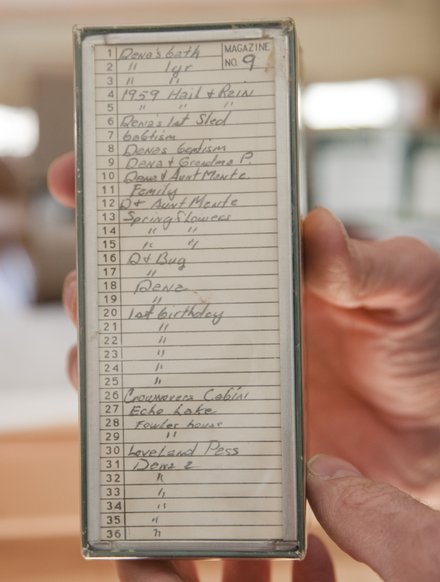 MAGAZINE
NO. 9
1 Dena's bath
2 " 1yr
3 " "
4 1959 Hail & Rain
5 " " "
6 Dena's 1st Sled
7 baptism
8 Dena's baptism
9 Dena & Grandma P.
10 Dena & Aunt Monte
11 Family
12 D & Aunt Monte
13 Spring flowers
14 " "
15 " "
16 D & Bug
17 "
18 Dena
19 "
20 1st birthday
21 "
22 "
23 "
24 "
25 "
26 Cabin
27 Echo Lake
28 Fowler house
29 "
30 Loveland Pass
31 Dena 2
32 "
33 "
34 "
35 "
36 "